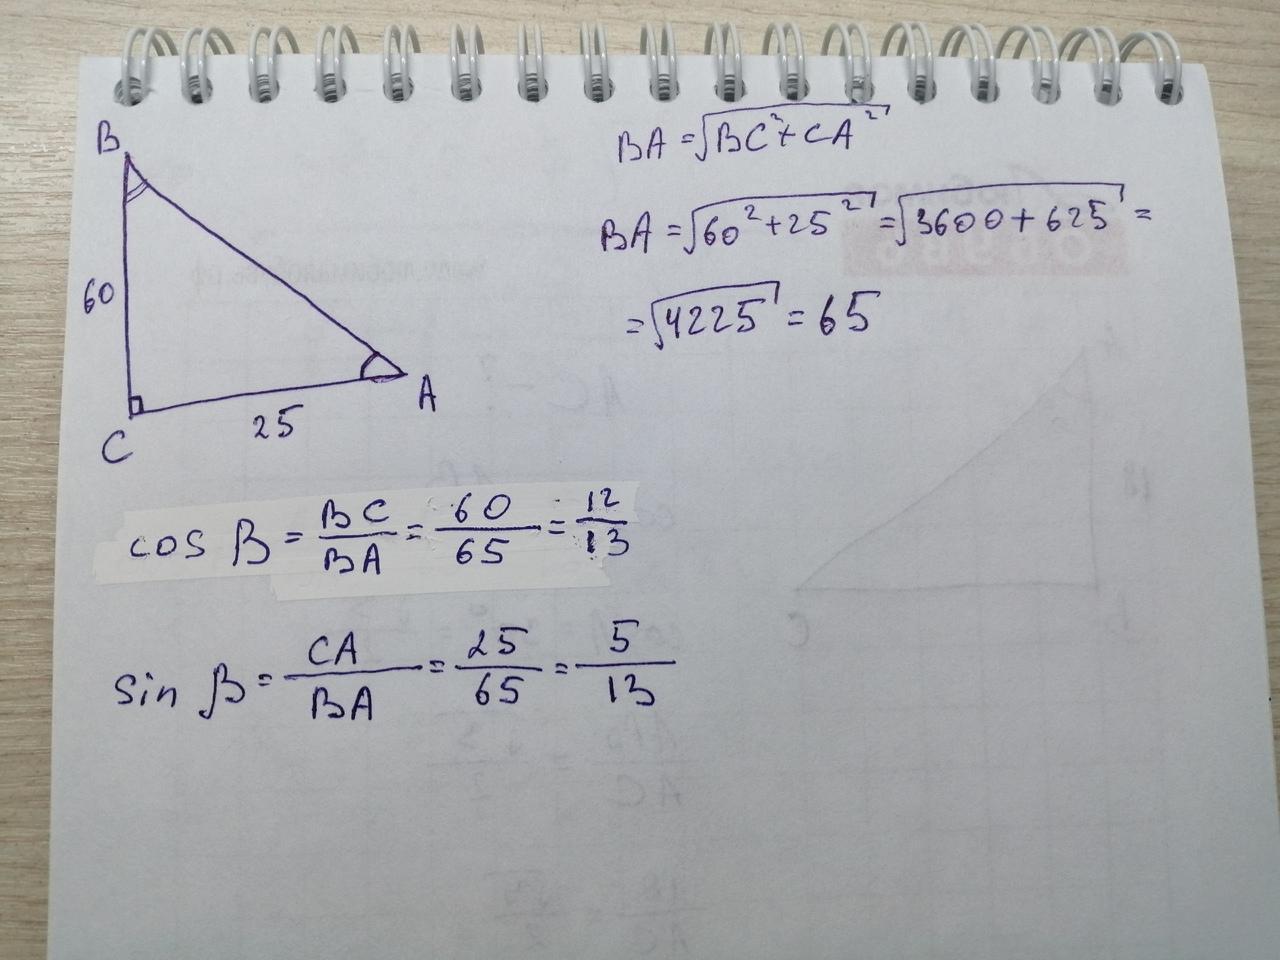 B
60
C
25
A
BA = √BC² + CA²
BA = √60² + 25² = √3600 + 625 =
= √4225 = 65
cos B = BC/BA = 60/65 = 12/13
sin β = CA/BA = 25/65 = 5/13